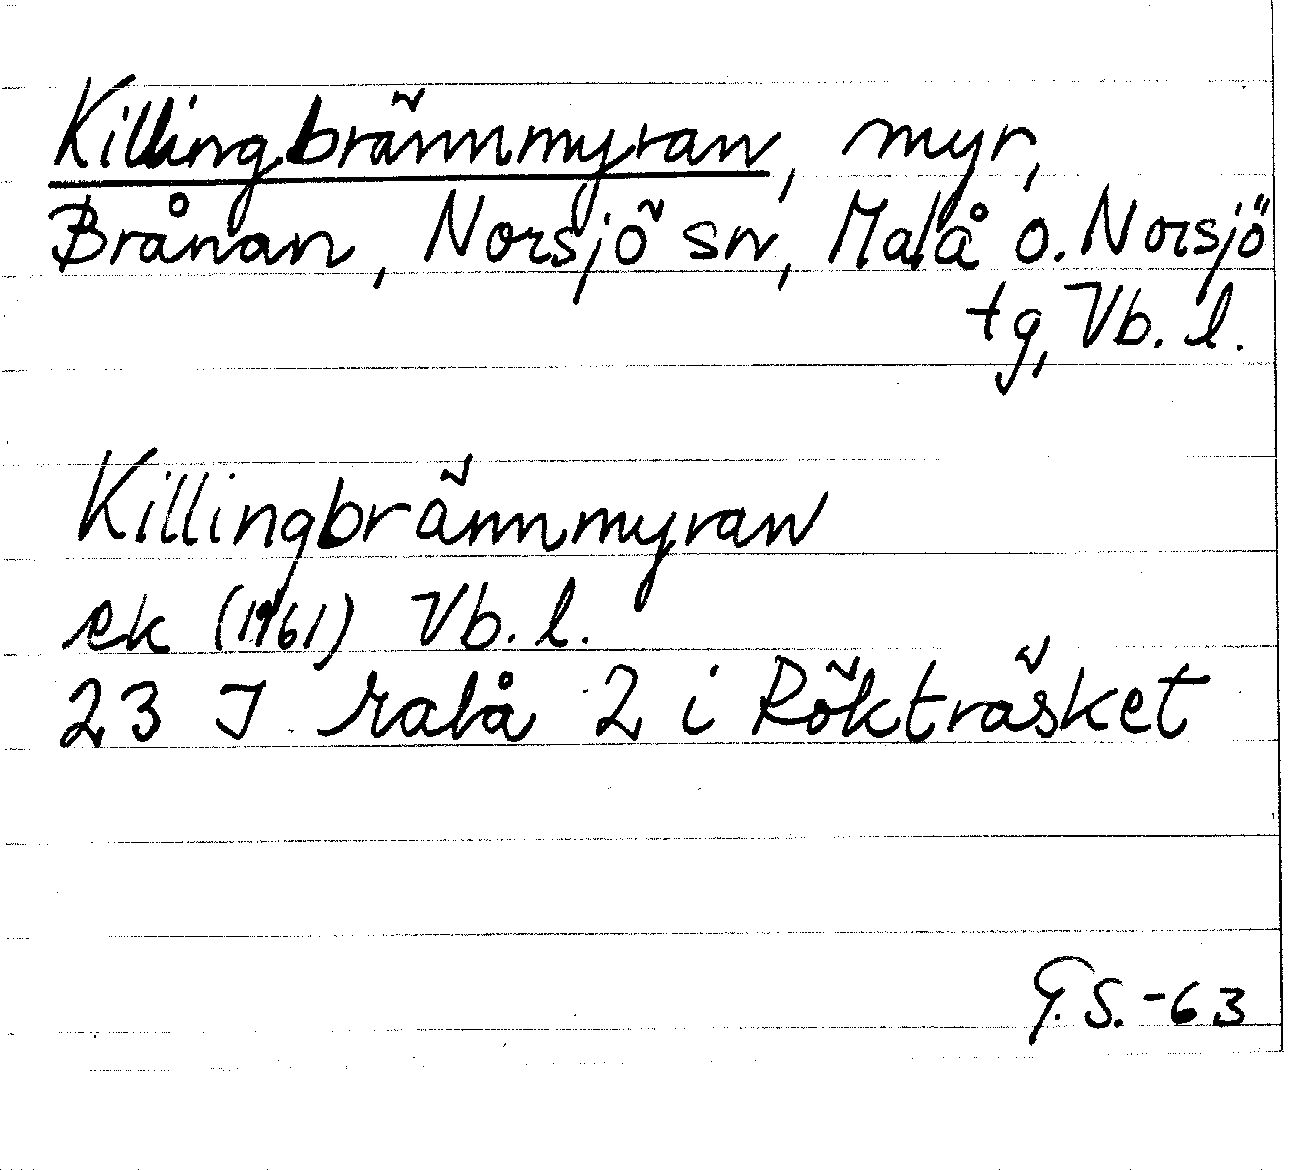 Killingbrännmyran, myr,
Brånan, Norsjö sn, Malå o. Norsjö
tg, Vb. l.
Killingbrännmyran
ek (1961) Vb. l.
23 J Malå 2 i Rökträsket
G.S.-63